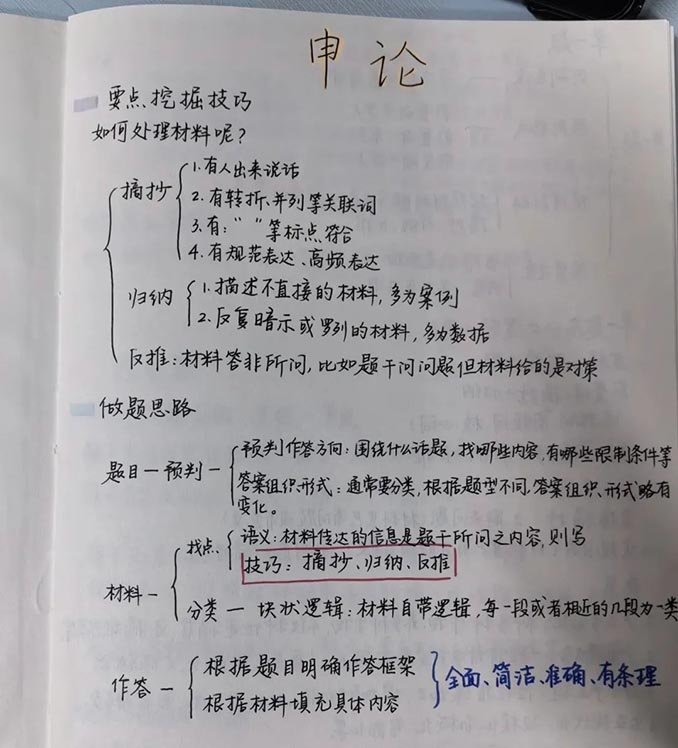 申论
要点挖掘技巧
如何处理材料呢?
摘抄
1.有人出来说话
2.有转折、并列等关联词
3.有:“ ”等标点符合
4.有规范表达、高频表达
归纳
1.描述不直接的材料,多为案例
2.反复暗示或罗列的材料,多为数据
反推:材料答非所问,比如题干问问题但材料给的是对策
做题思路
题目一预判一
预判作答方向:围绕什么话题,找哪些内容,有哪些限制条件等
答案组织形式:通常要分类,根据题型不同,答案组织、形式略有
变化。
材料一
找点
语义:材料传达的信息是题干所问之内容,则写
技巧:摘抄、归纳、反推
分类一块状逻辑:材料自带逻辑,每一段或者相近的几段为一类
作答一
根据题目明确作答框架
根据材料填充具体内容
全面、简洁、准确、有条理